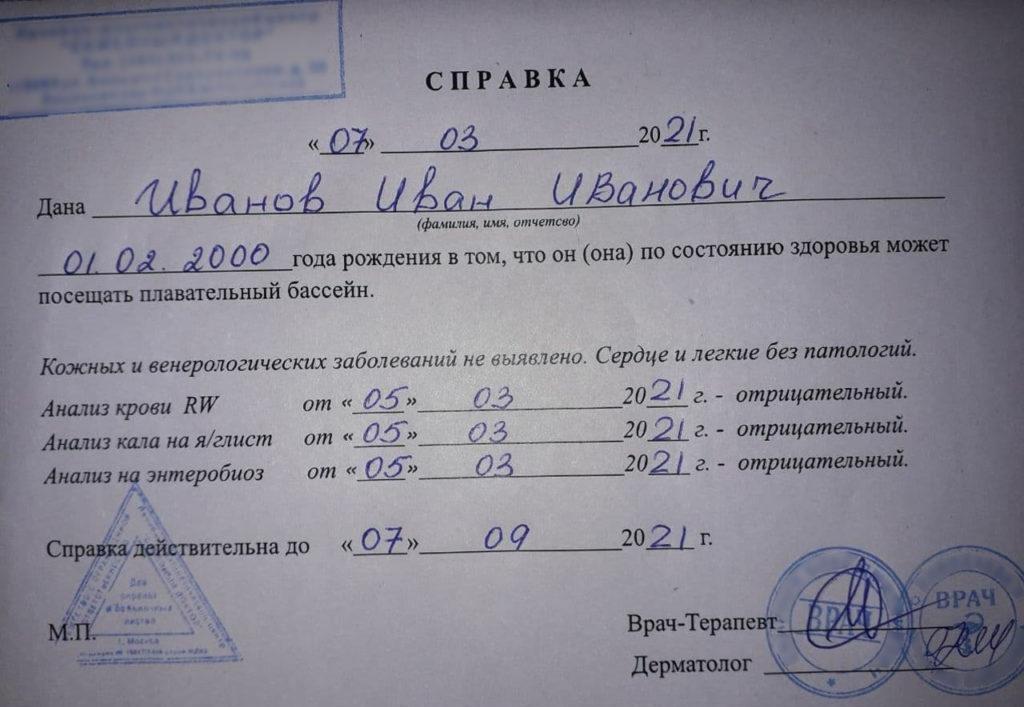 СПРАВКА
« 07 » 03 2021 г.
Дана Иванов Иван Иванович
(фамилия, имя, отчетсво)
01.02.2000 года рождения в том, что он (она) по состоянию здоровья может
посещать плавательный бассейн.
Кожных и венерологических заболеваний не выявлено. Сердце и легкие без патологий.
Анализ крови RW от « 05 » 03 2021 г. - отрицательный.
Анализ кала на я/глист от « 05 » 03 2021 г. - отрицательный.
Анализ на энтеробиоз от « 05 » 03 2021 г. - отрицательный.
Справка действительна до « 07 » 09 2021 г.
Для
справок
и больничных
листов
г. Москва
М.П.
Врач-Терапевт ВРАЧ ВРАЧ
Дерматолог